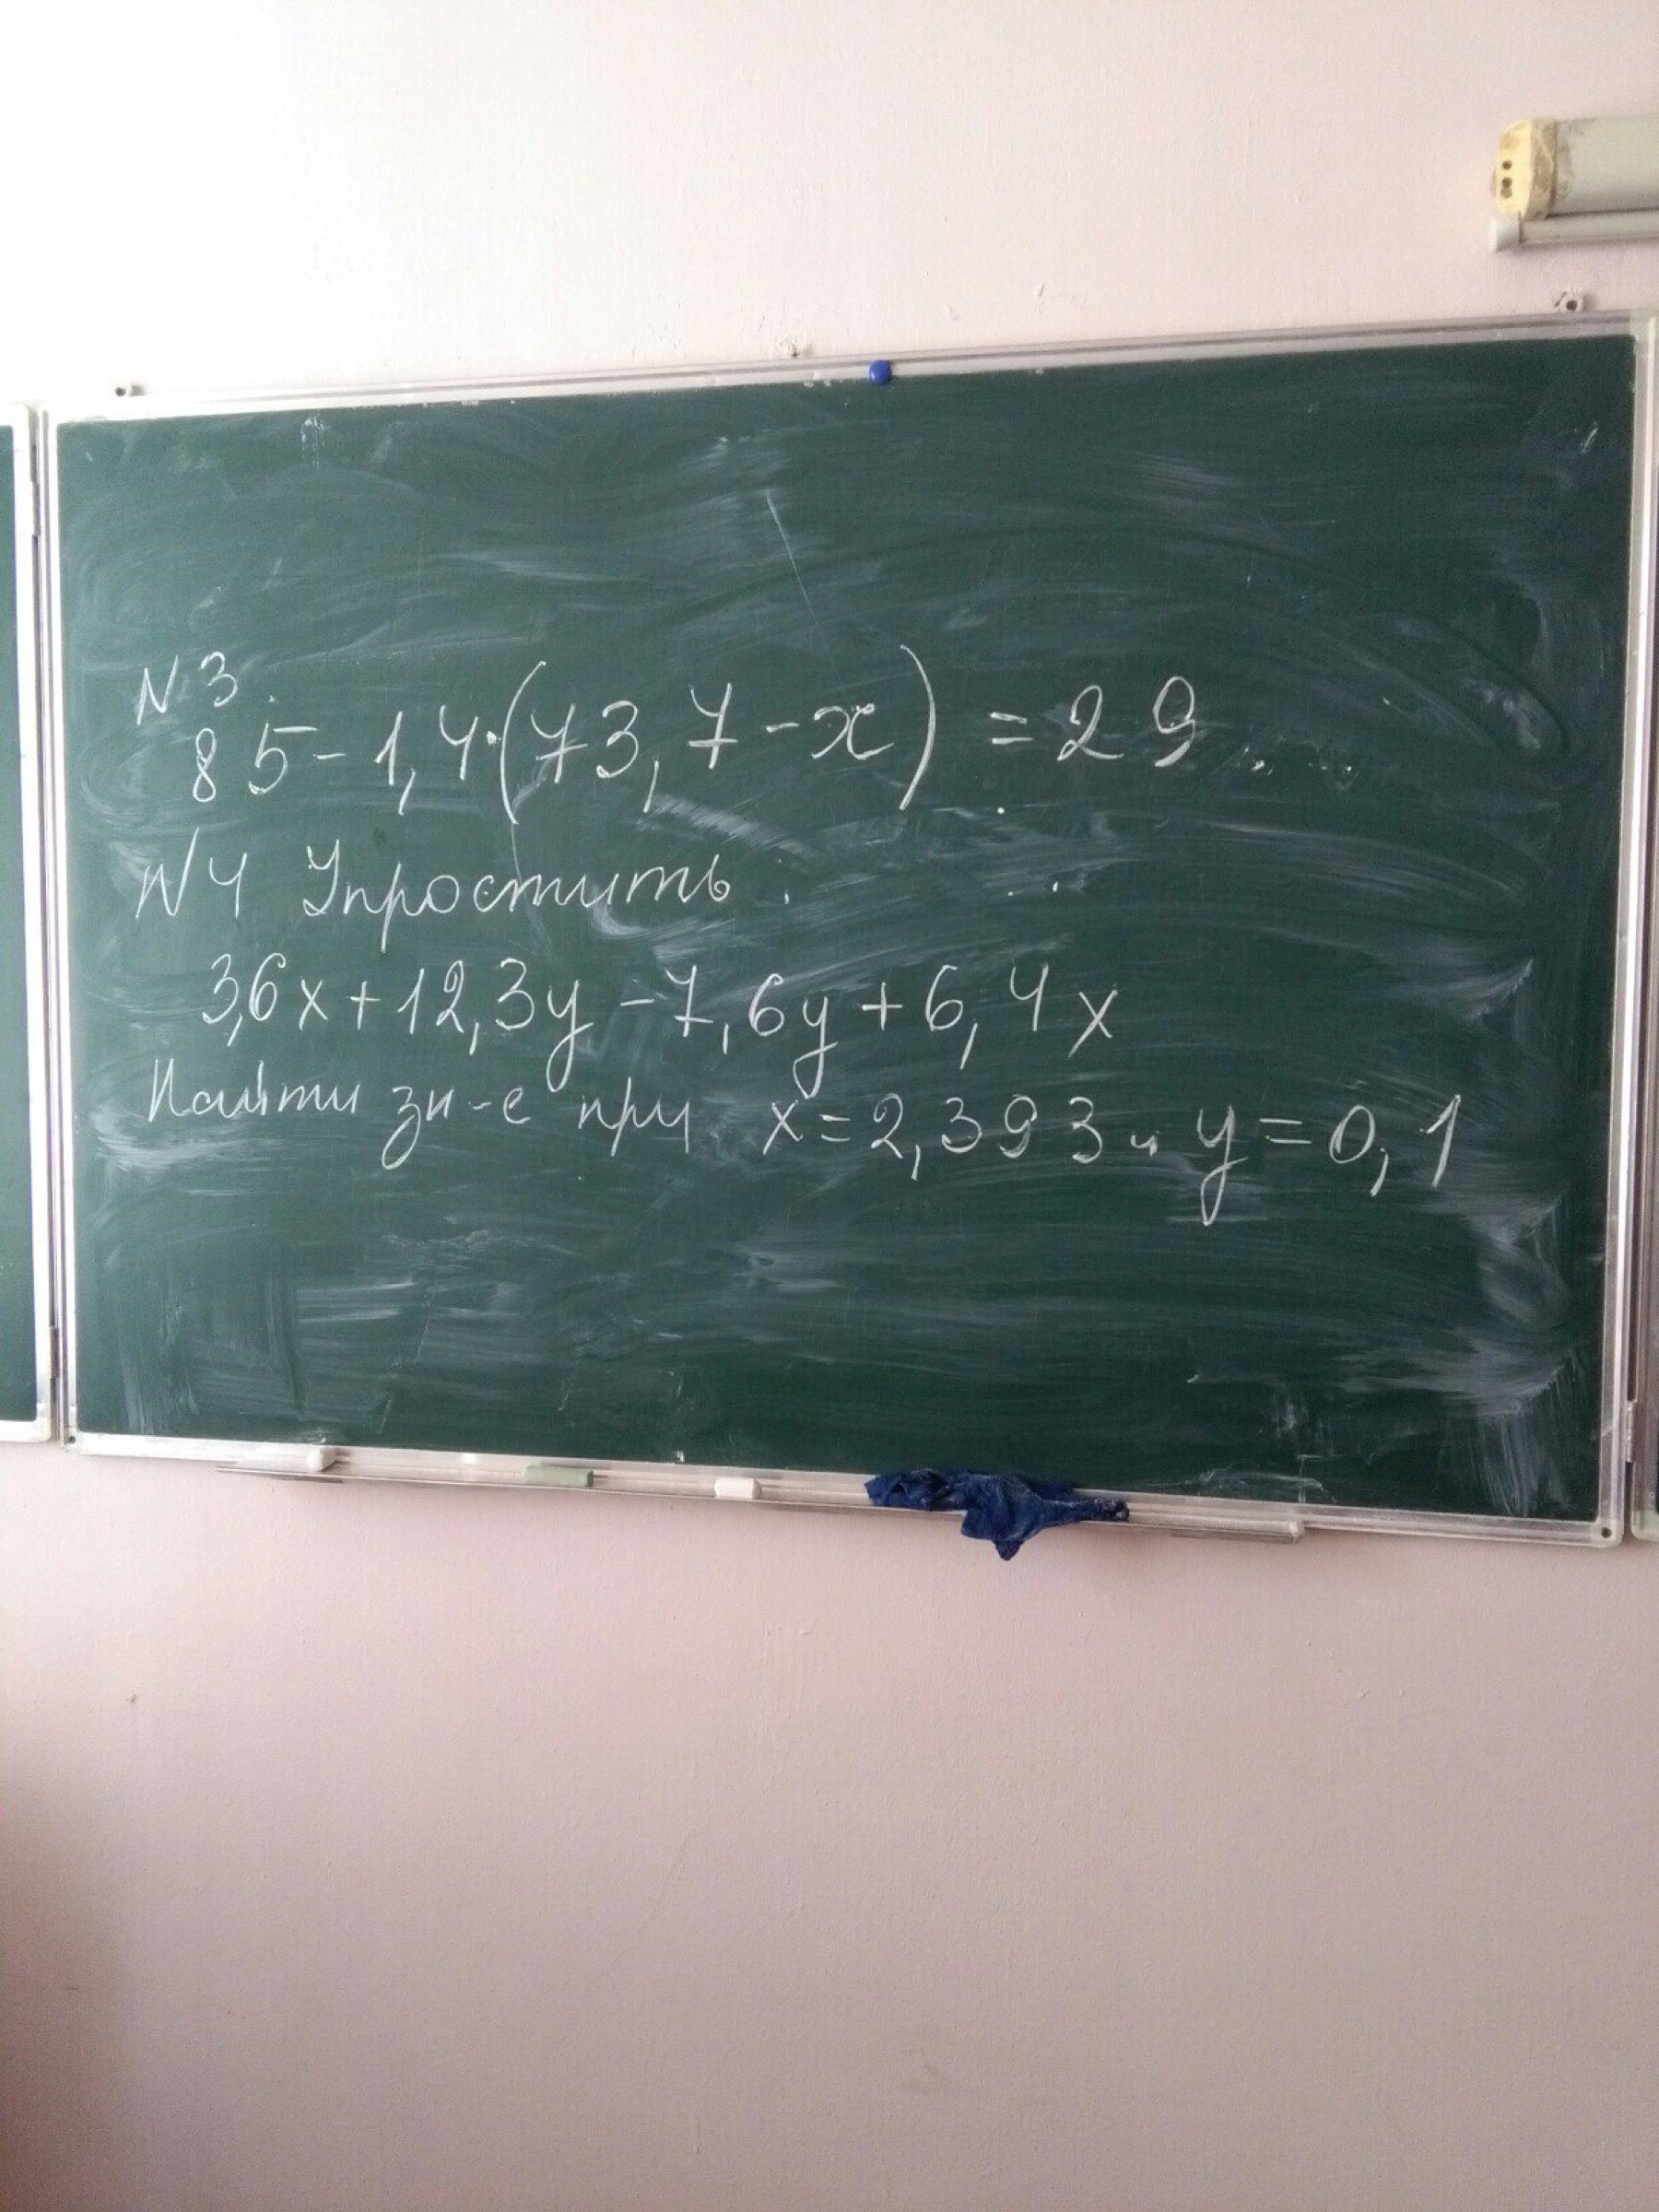 N 3
85-1,4·(73,7-x)=29
N 4 Упростить
3,6x+12,3y-7,6y+6,4x
Найти зн-е при x=2,393 и y=0,1